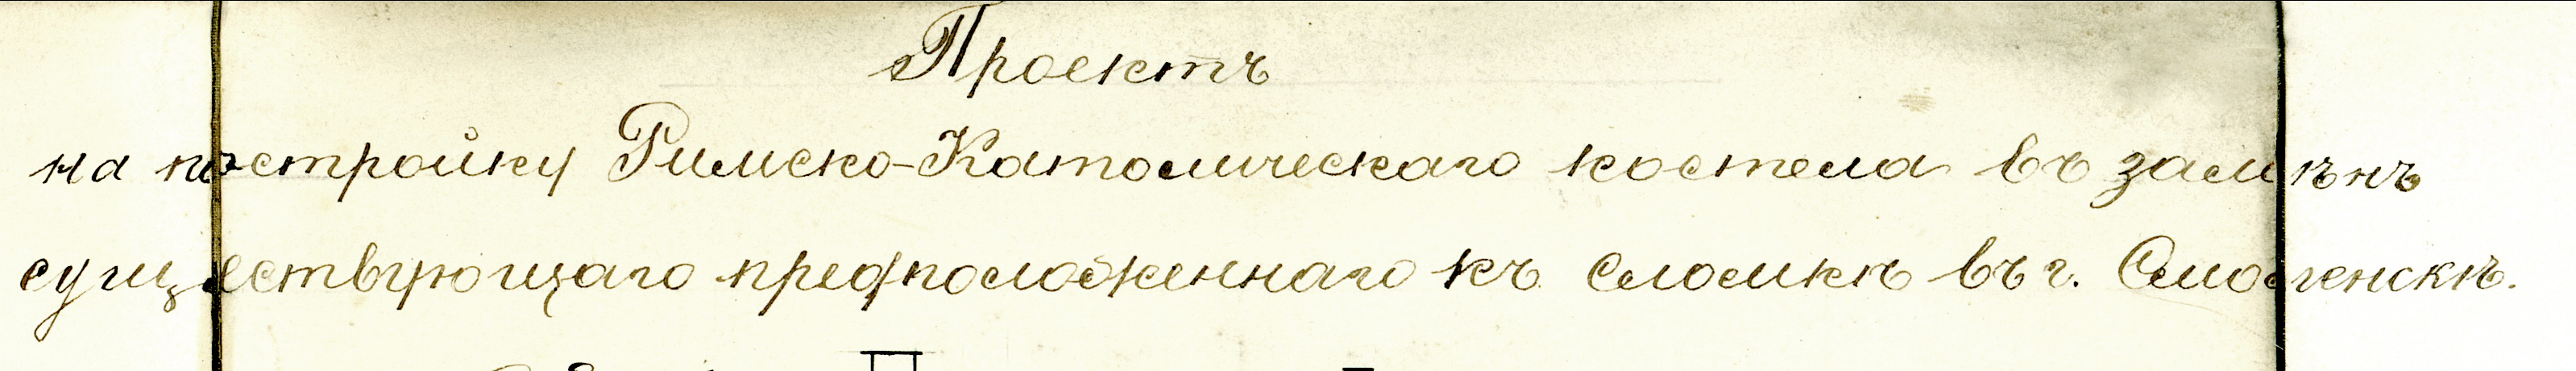 Проектъ
на постройку Римско-Католическаго костела въ замѣнъ
существующаго предположеннаго къ сломкѣ въ г. Смоленскѣ.